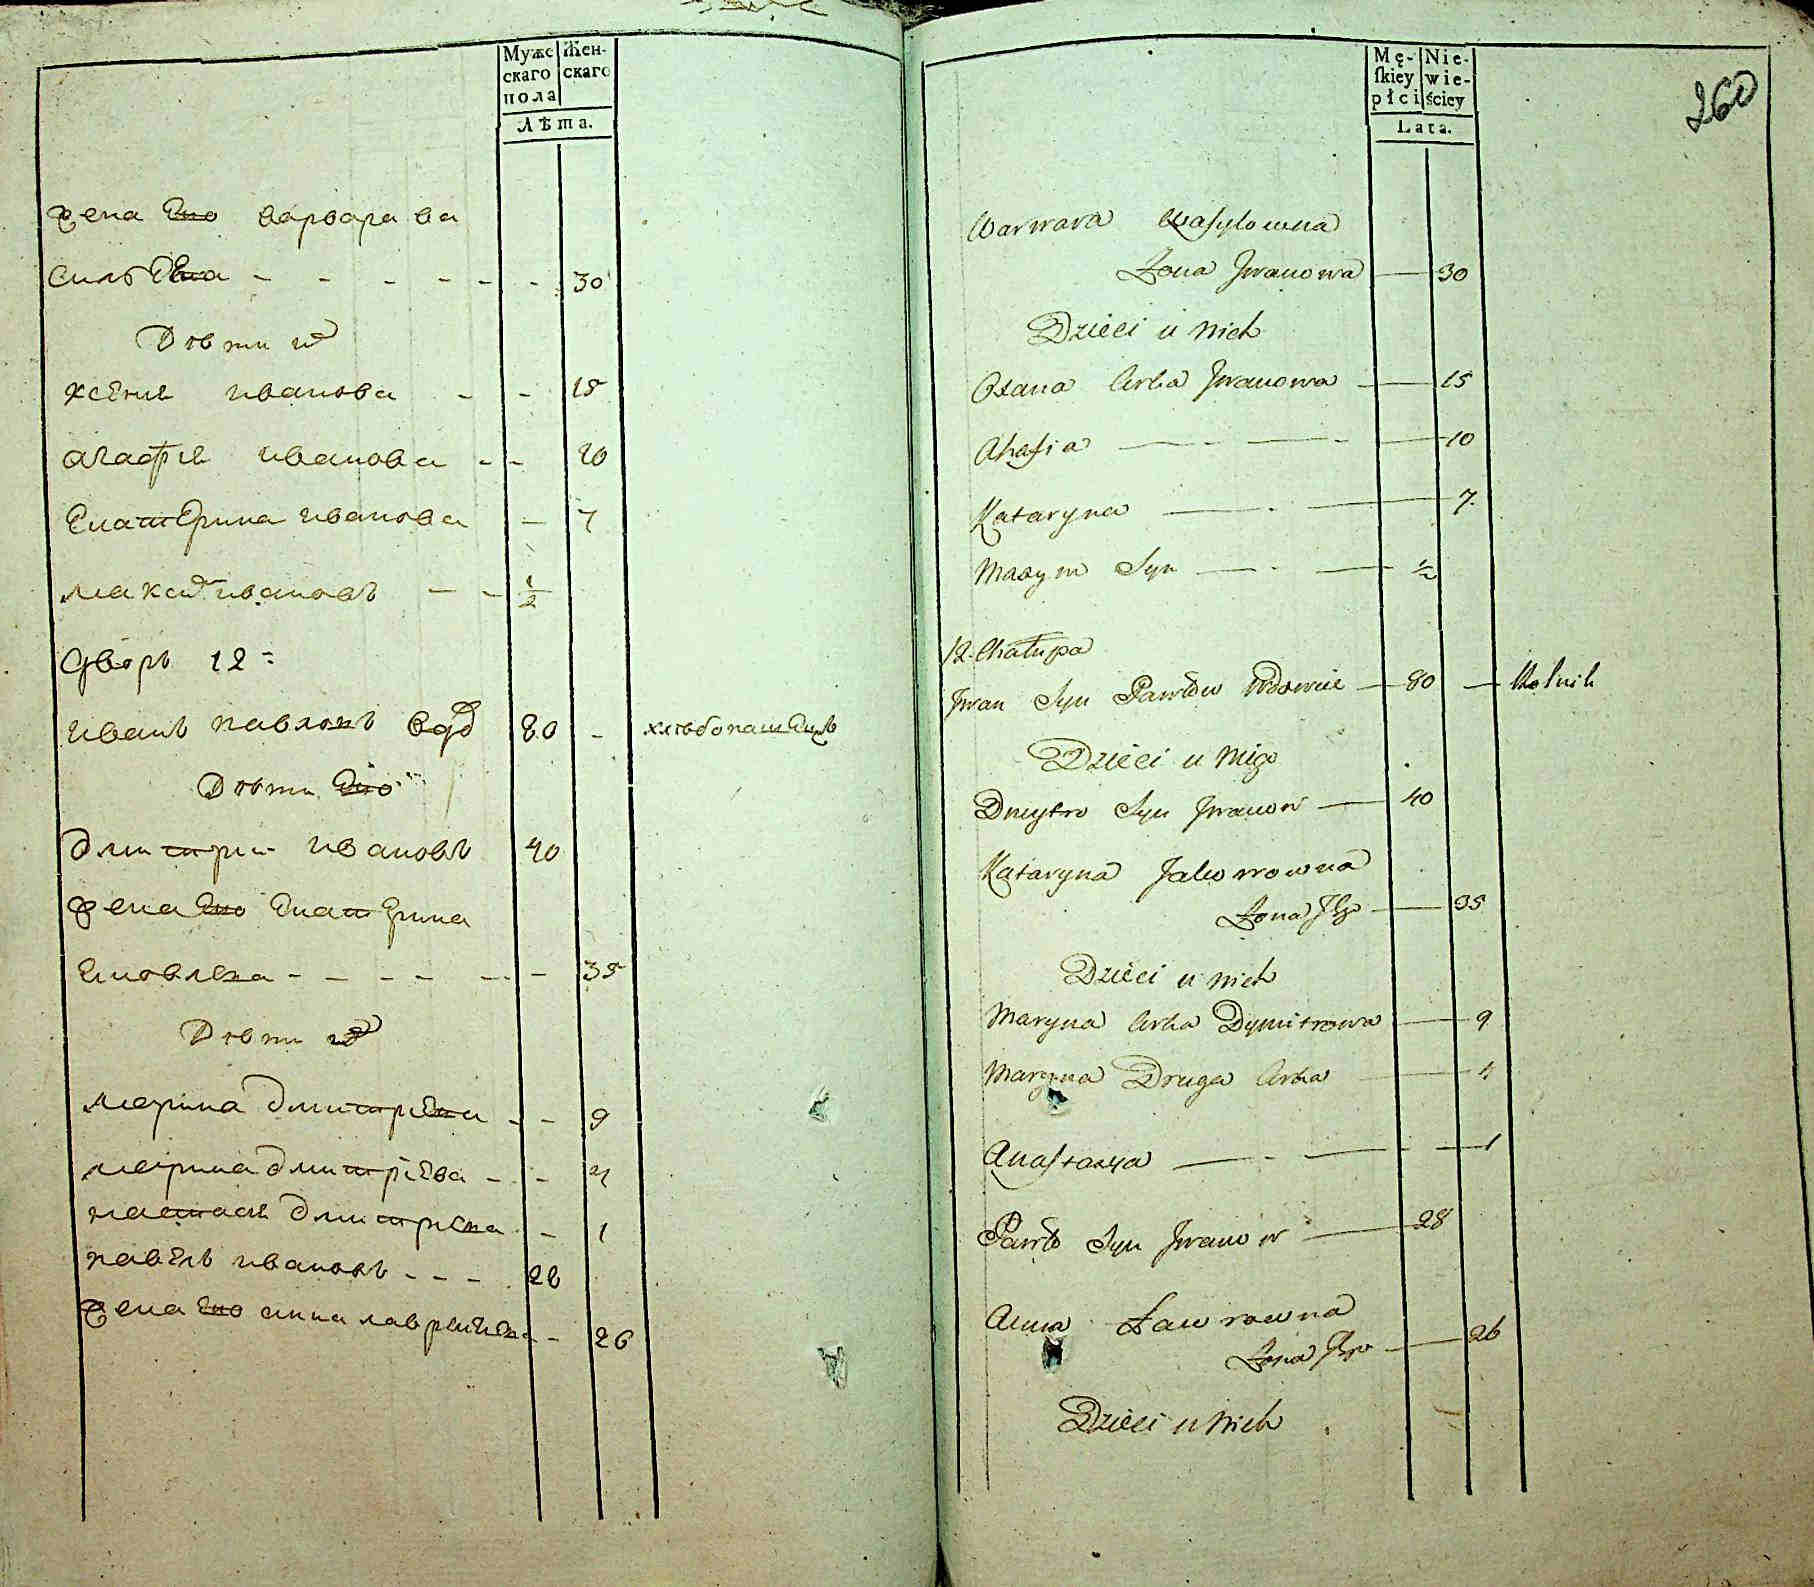 Муже Жен-
скаго скаго
пола
Лѣта.
жена Его варвара ва
силѣЕва - - - - - - 30
Дѣти ихъ
ксЕниѣ иванова - - 15
агафиѣ иванова - - 10
ЕкатЕрина иванова - 7
максимъ ивановъ - - 1/2
дворъ 12 =
иванъ павловъ вдовъ 80 - хлѣбопашЕцъ
Дѣти Его
дмитрии ивановъ 40
жена Его ЕкатЕрина
Ековлева - - - - - - 35
Дѣти ихъ
марина дмитриЕва - - 9
марина дмитриЕва - - 4
настасиѣ дмитриЕва - 1
павЕлъ ивановъ - - - 28
жена Его анна лавринЕва - - 26
Mę- Nie-
ſkiey wie-
płci ściey
Lata.
260
Warwara Wasylowna
Żona Jwanowa — 30
Dzieci u nich
Oxana Corka Jwanowa — 15
Ahafia — - — - — 10
Kataryna — - — 7.
Maxym Syn — - — 1/2
12. Chałupa
Jwan Syn Pawłow Wdowiec — 80 — Rolnik
Dzieci u niego
Dmytro Syn Jwanow — 40
Kataryna Jakowowna
Żona Jego — 35
Dzieci u nich
Maryna Corka Dymitrowa — 9
Maryna Druga Corka — 4
Anastazya — - — - — 1
Pawło Syn Jwanow — 28
Anna Ławrowna
Żona Jego — 26
Dzieci u nich